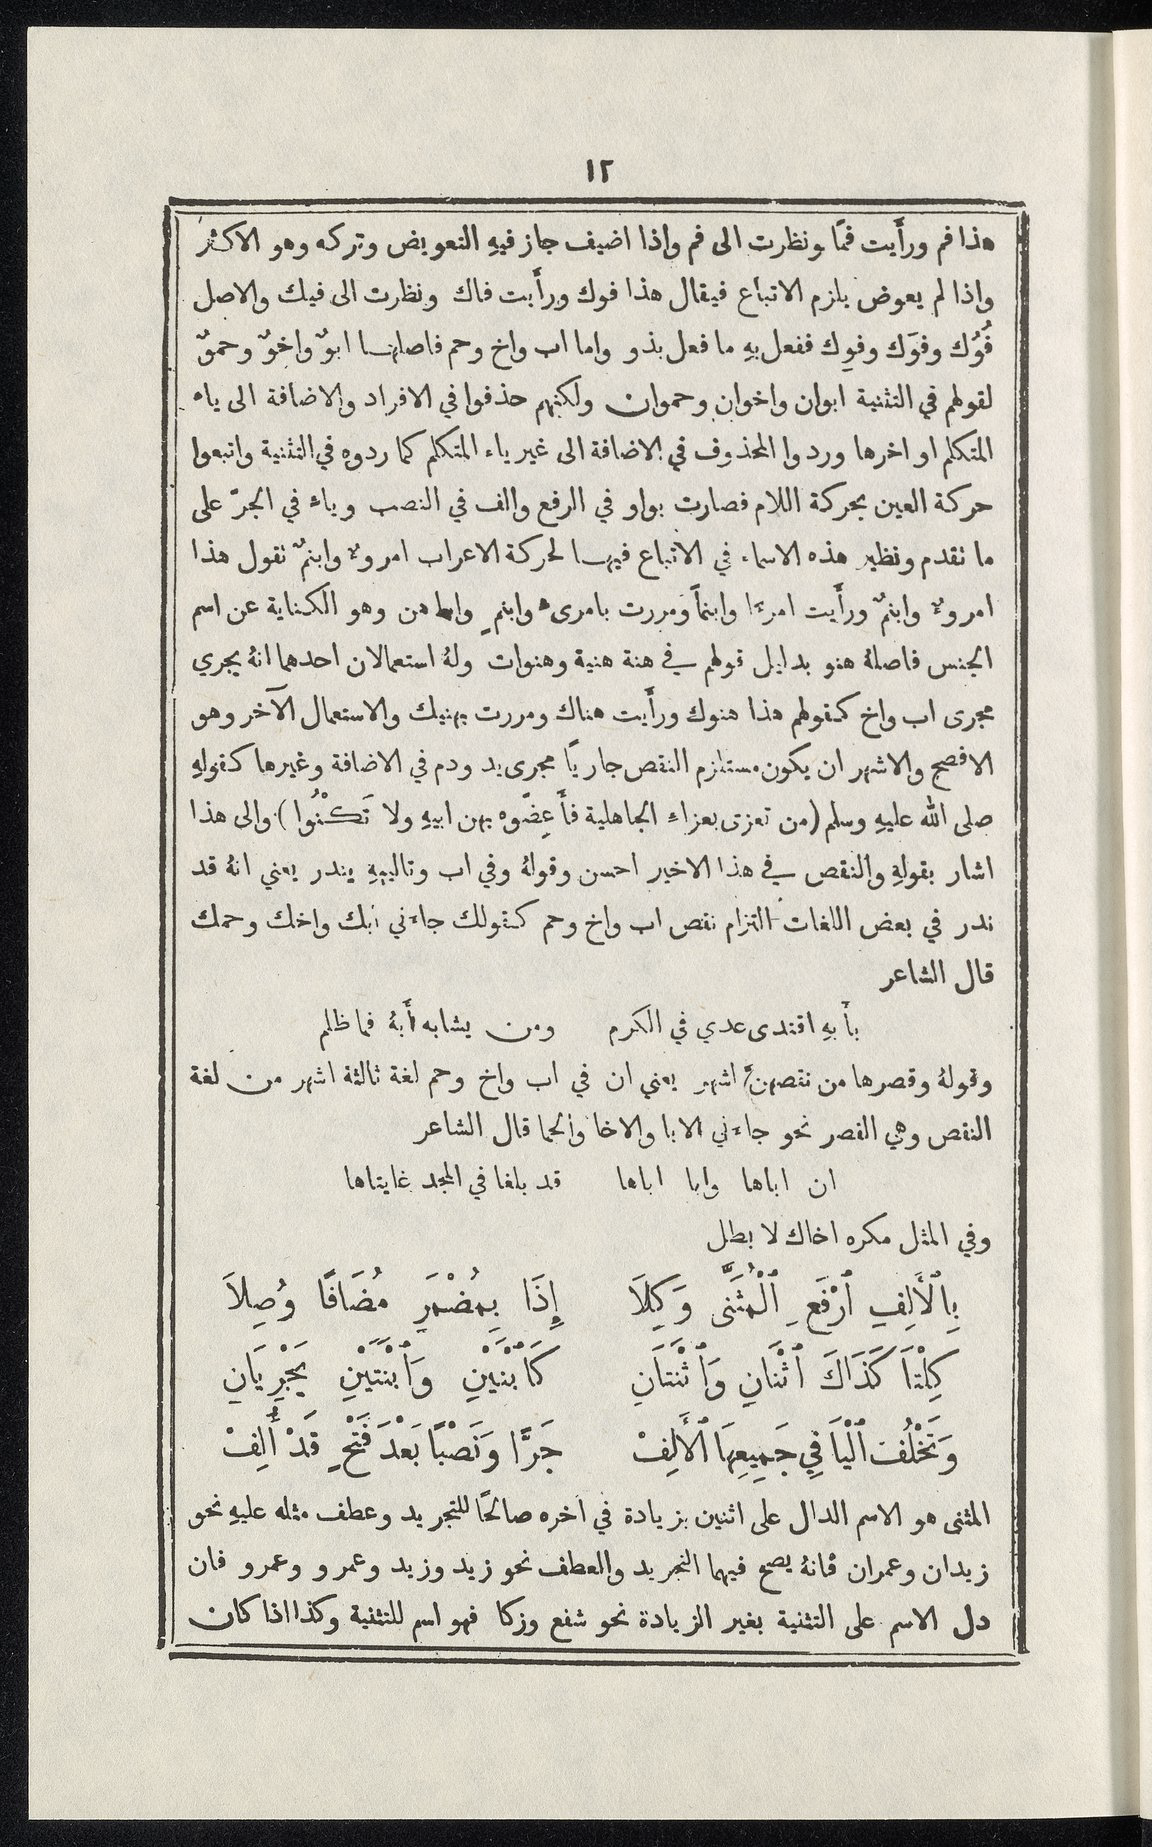 ١٢
هذا فم ورأَيت فمًا ونظرت الى فم واذا اضيف جاز فيهِ التعويض وتركه وهو الاكثر
واذا لم يعوض يلزم الاتباع فيقال هذا فوك ورأَيت فاك ونظرت الى فيك والاصل
فُوُك وفوَك وفوِك ففعل بهِ ما فعل بذو واما اب واخ وحم فاصلها ابوٌ واخوٌ وحموٌ
لقولهم في التثنية ابوان واخوان وحموان ولكنهم حذفوا في الافراد والاضافة الى ياء
المتكلم اواخرها وردوا المحذوف في الاضافة الى غير ياء المتكلم كما ردوه في التثنية واتبعوا
حركة العين بحركة اللام فصارت بواو في الرفع والف في النصب وياء في الجرّ على
ما تقدم ونظير هذه الاسماء في الاتباع فيها لحركة الاعراب امروءٌ وابنمٌ تقول هذا
امروءٌ وابنمٌ ورأَيت امرءًا وابنمًا ومررت بامرىءٍ وابنمٍ واما هن وهو الكناية عن اسم
الجنس فاصلهُ هنو بدليل قولهم في هنة هنية وهنوات ولهُ استعمالان احدهما انهُ يجري
مجرى اب واخ كقولهم هذا هنوك ورأَيت هناك ومررت بهنيك والاستعمال الآخر وهو
الافصح والاشهر ان يكون مستلزم النقص جاريًا مجرى يد ودم في الاضافة وغيرها كقولهِ
صلى الله عليهِ وسلم (من تعزى بعزاء الجاهلية فأَعِضّوه بهن ابيهِ ولا تَكْنُوا) والى هذا
اشار بقولهِ والنقص في هذا الاخير احسن وقولهُ وفي اب وتالييهِ يندر يعني انهُ قد
ندر في بعض اللغات التزام نقص اب واخ وحم كقولك جاءني ابك واخك وحمك
قال الشاعر
بأَبهِ اقتدى عدي في الكرم ومن يشابه أَبهُ فما ظلم
وقولهُ وقصرها من نقصهنَّ اشهر يعني ان في اب واخ وحم لغة ثالثة اشهر من لغة
النقص وهي القصر نحو جاءني الابا والاخا والحما قال الشاعر
ان اباها وابا اباها قد بلغا في المجد غايتاها
وفي المثل مكره اخاك لا بطل
بِٱلْأَلِفِ ٱرْفَعِ ٱلْمُثَنَّى وَكِلَا إِذَا بِمُضْمَرٍ مُضَافًا وُصِلَا
كِلْتَا كَذَاكَ ٱثْنَانِ وَٱثْنَتَانِ كَٱبْنَيْنِ وَٱبْنَتَيْنِ يَجْرِيَانِ
وَتَخْلُفُ ٱلْيَا فِي جَمِيعِهَا ٱلْأَلِفْ جَرًّا وَنَصْبًا بَعْدَ فَتْحٍ قَدْ أُلِفْ
المثنى هو الاسم الدال على اثنين بزيادة في اخره صالحًا للتجريد وعطف مثله عليهِ نحو
زيدان وعمران فانهُ يصح فيهما التجريد والعطف نحو زيد وزيد وعمرو وعمرو فان
دل الاسم على التثنية بغير الزيادة نحو شفع وزكا فهو اسم للتثنية وكذا اذا كان